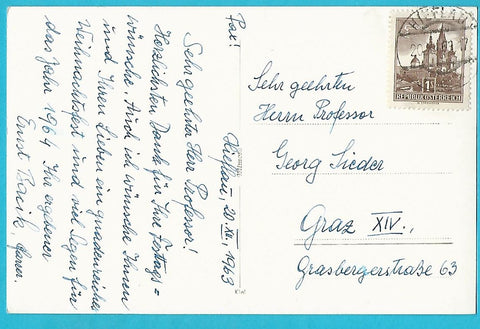 Pax!
Hieflau, 20. XII. 1963
Sehr geehrter Herr Professor!
Herzlichsten Dank für Ihre Festtags=
wünsche. Auch ich wünsche Ihnen
und Ihren Lieben ein gnadenreiches
Weihnachtsfest und viel Segen für
das Jahr 1964 Ihr ergebener
Ernst Pfarrer.
Sehr geehrten
Herrn Professor
Georg Sieder
Graz XIV.,
Grasbergerstraße 63
HIEFLAU
1
REPUBLIK ÖSTERREICH